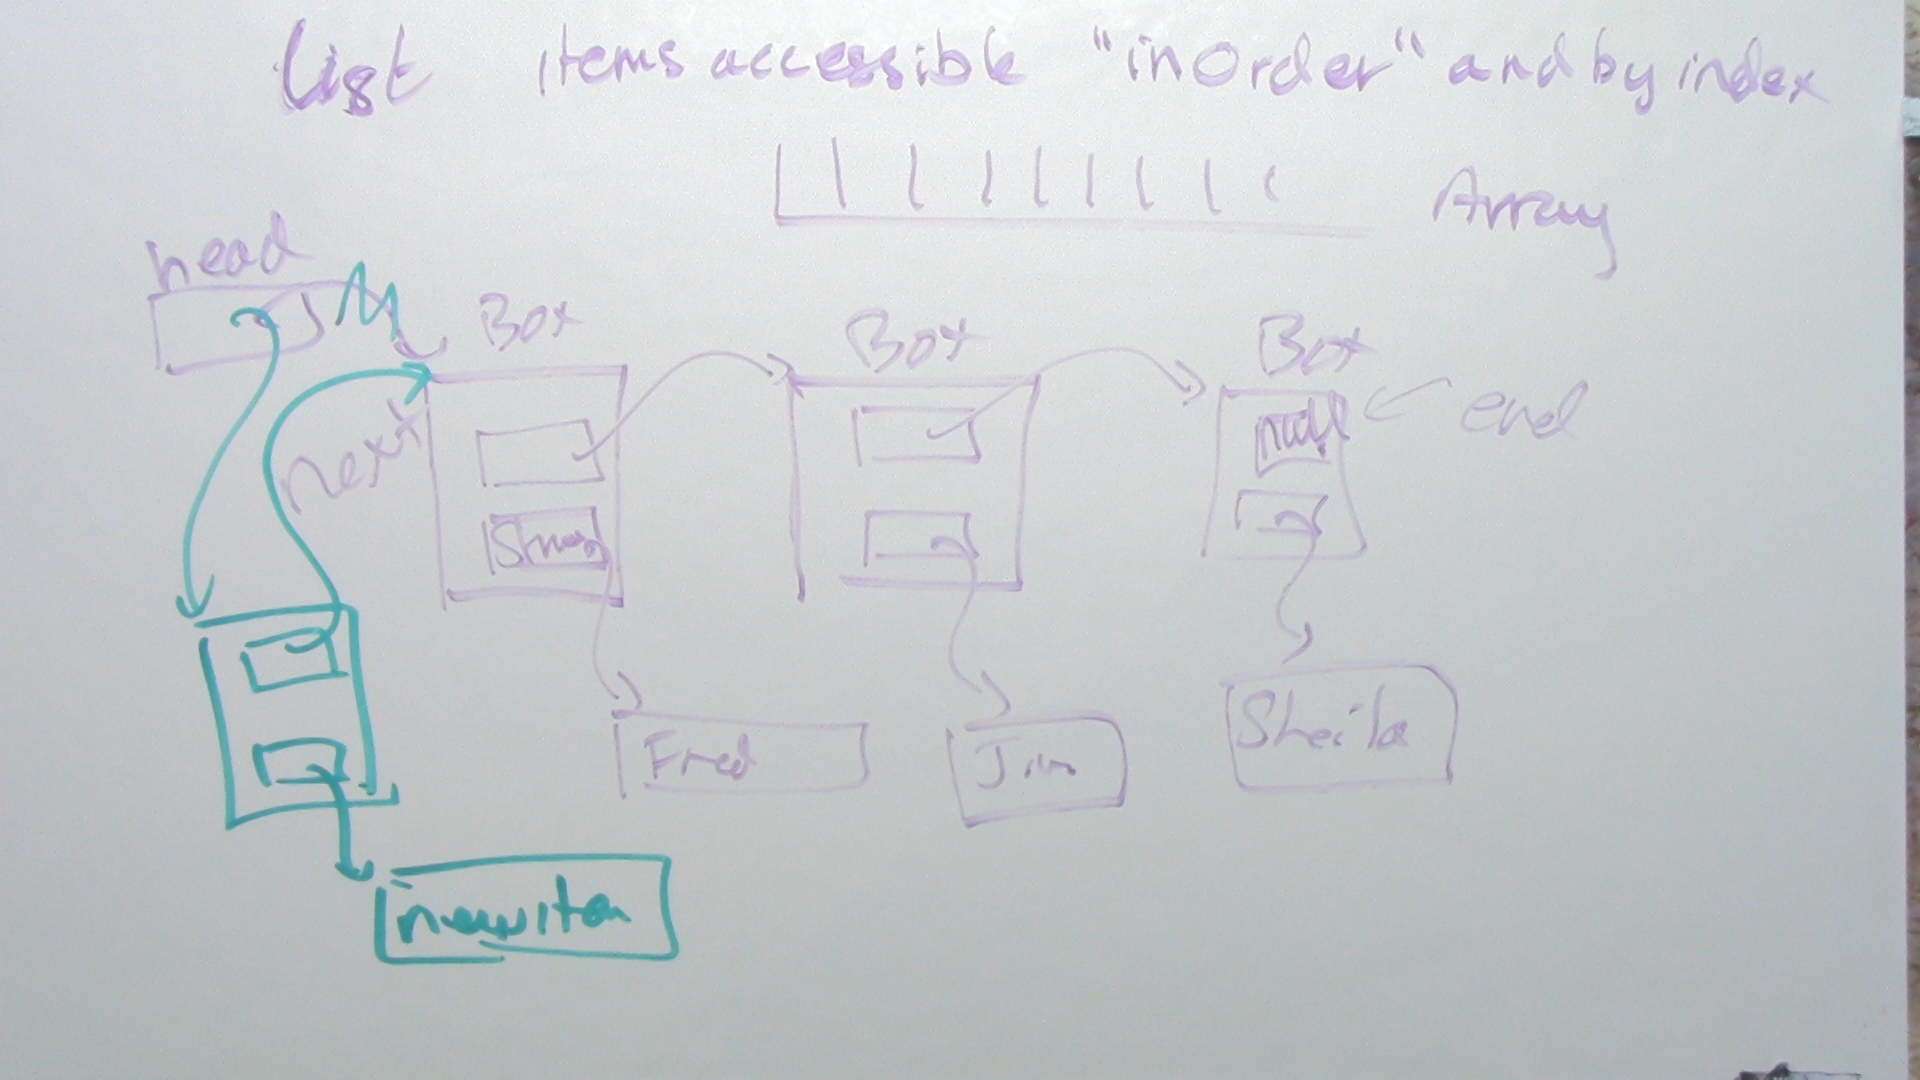 List items accessible "inOrder" and by index
Array
head
Box
Box
Box
next
null
end
Fred
Jim
Sheila
newitem